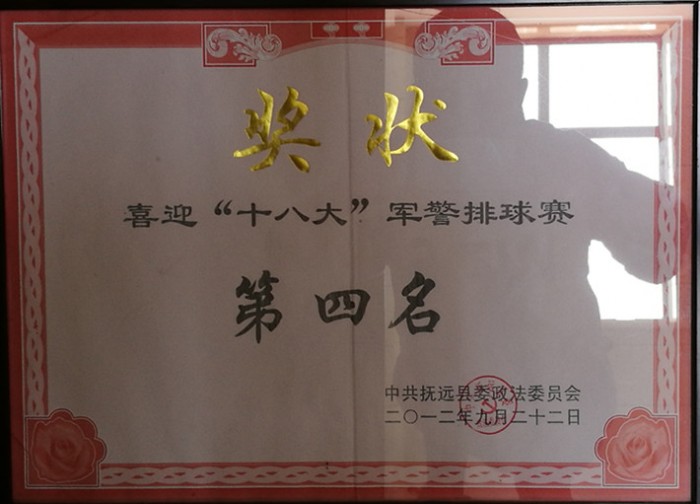 奖状
喜迎“十八大”军警排球赛
第四名
中共抚远县委政法委员会
二〇一二年九月二十二日